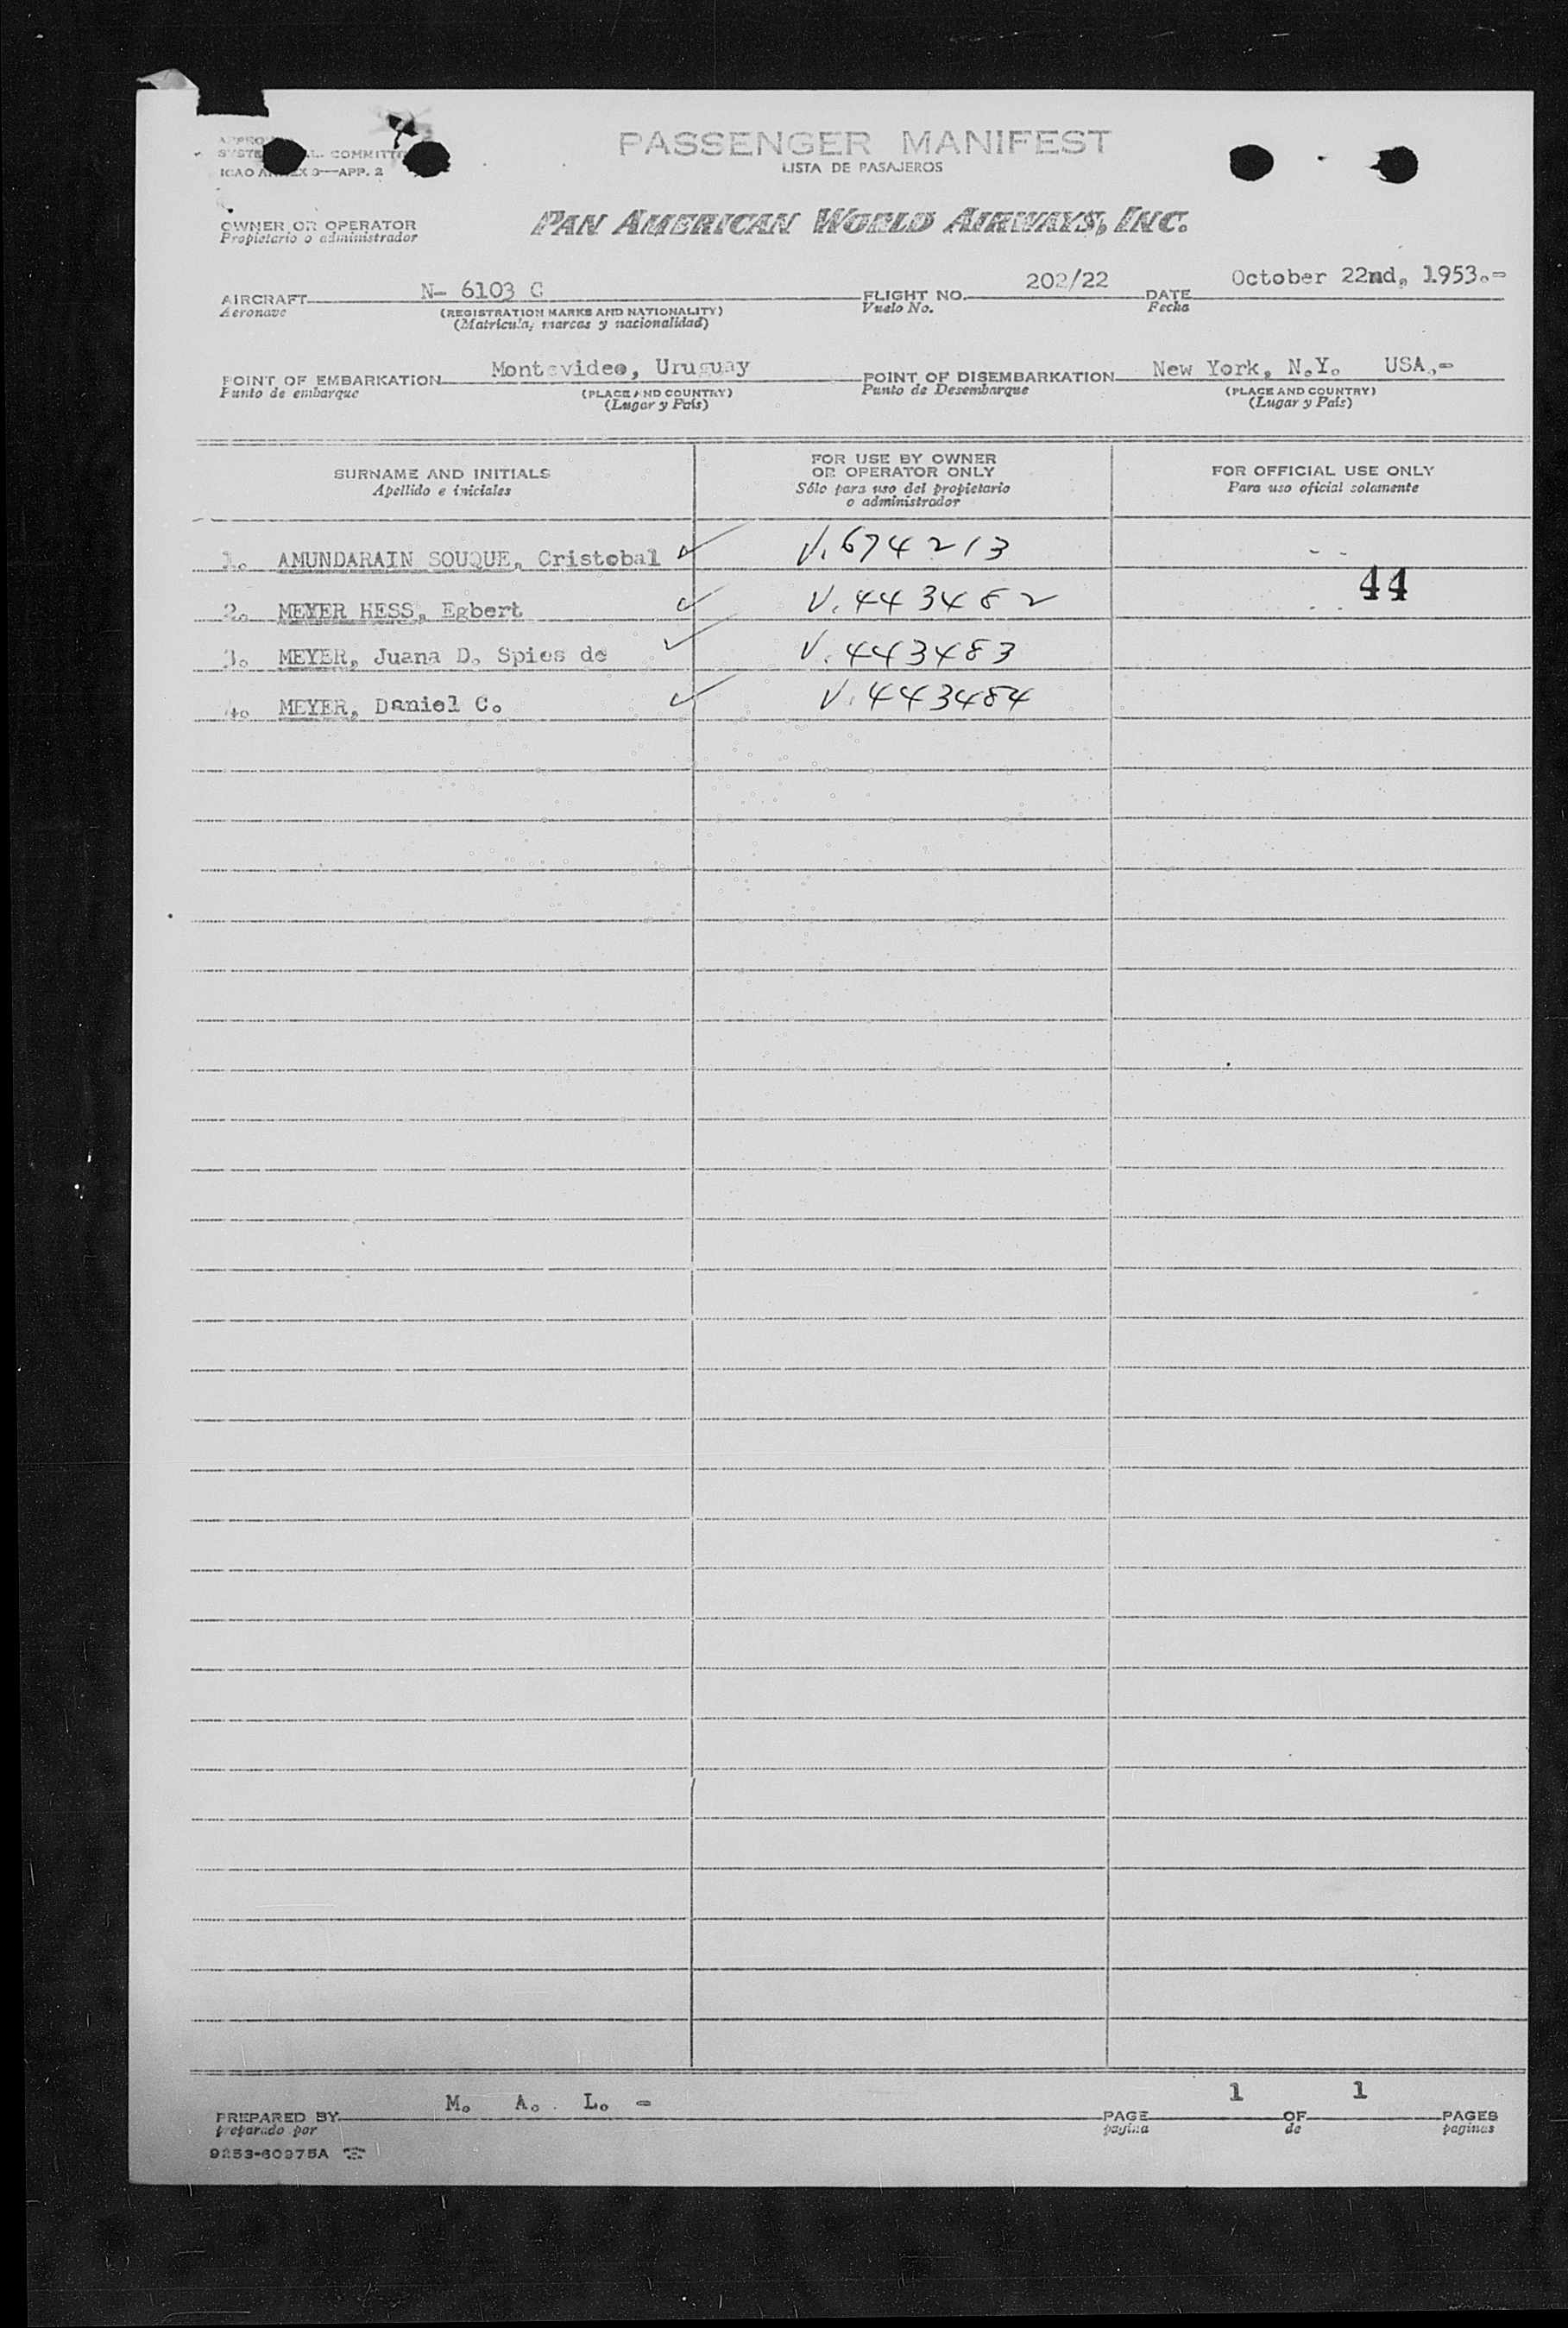 PASSENGER MANIFEST
LISTA DE PASAJEROS
COMMITT
ICAO ANNEX 9—APP. 2
OWNER OR OPERATOR
Propietario o administrador
PAN AMERICAN WORLD AIRWAYS, INC.
AIRCRAFT N- 6103 C FLIGHT NO. 202/22 DATE October 22nd, 1953.-
Aeronave (REGISTRATION MARKS AND NATIONALITY) Vuelo No. Fecha
(Matrícula, marcas y nacionalidad)
POINT OF EMBARKATION Montevideo, Uruguay POINT OF DISEMBARKATION New York, N.Y. USA.-
Punto de embarque (PLACE AND COUNTRY) Punto de Desembarque (PLACE AND COUNTRY)
(Lugar y País) (Lugar y País)
SURNAME AND INITIALS
Apellido e iniciales
FOR USE BY OWNER
OR OPERATOR ONLY
Sólo para uso del propietario
o administrador
FOR OFFICIAL USE ONLY
Para uso oficial solamente
1. AMUNDARAIN SOUQUE, Cristobal V. 674213
44
2. MEYER HESS, Egbert V. 443482
3. MEYER, Juana D. Spies de V. 443483
4. MEYER, Daniel C. V. 443484
PREPARED BY M. A. L. - PAGE 1 OF 1 PAGES
preparado por pagina de paginas
9253-60975A